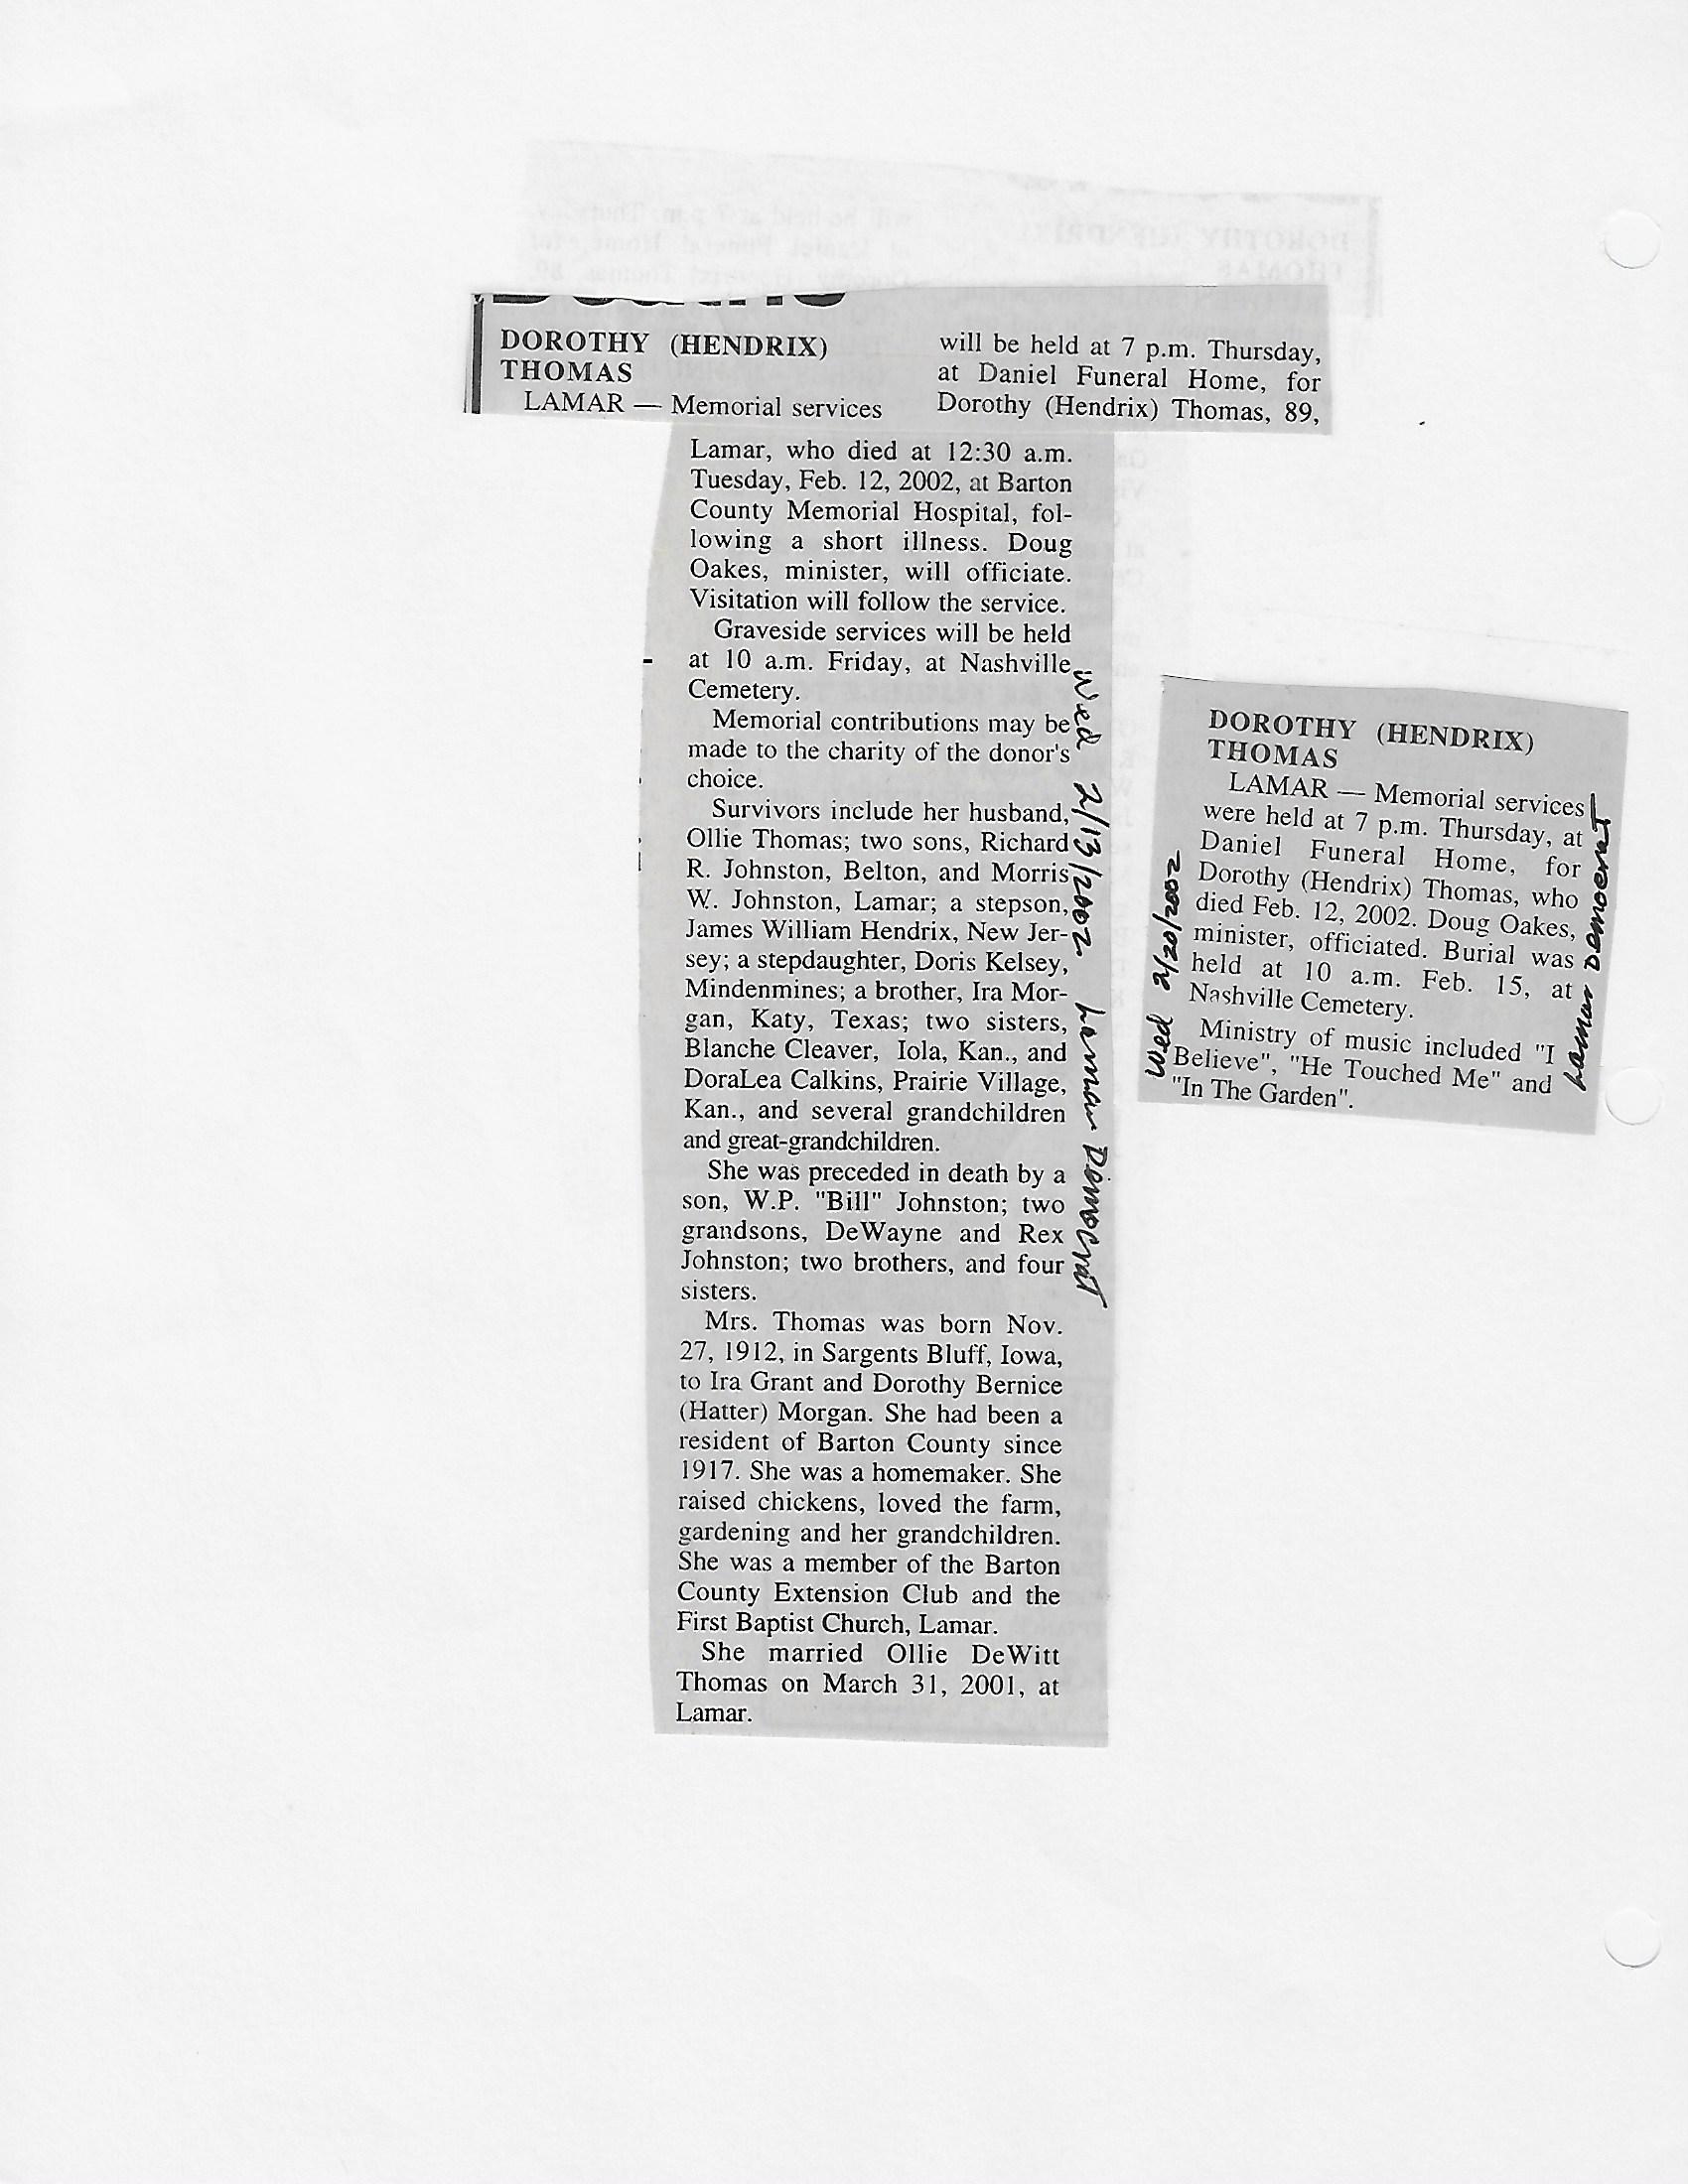 DOROTHY (HENDRIX)
THOMAS
LAMAR — Memorial services
will be held at 7 p.m. Thursday,
at Daniel Funeral Home, for
Dorothy (Hendrix) Thomas, 89,
Lamar, who died at 12:30 a.m.
Tuesday, Feb. 12, 2002, at Barton
County Memorial Hospital, fol-
lowing a short illness. Doug
Oakes, minister, will officiate.
Visitation will follow the service.
Graveside services will be held
at 10 a.m. Friday, at Nashville
Cemetery.
Memorial contributions may be
made to the charity of the donor's
choice.
Survivors include her husband,
Ollie Thomas; two sons, Richard
R. Johnston, Belton, and Morris
W. Johnston, Lamar; a stepson,
James William Hendrix, New Jer-
sey; a stepdaughter, Doris Kelsey,
Mindenmines; a brother, Ira Mor-
gan, Katy, Texas; two sisters,
Blanche Cleaver, Iola, Kan., and
DoraLea Calkins, Prairie Village,
Kan., and several grandchildren
and great-grandchildren.
She was preceded in death by a
son, W.P. "Bill" Johnston; two
grandsons, DeWayne and Rex
Johnston; two brothers, and four
sisters.
Mrs. Thomas was born Nov.
27, 1912, in Sargents Bluff, Iowa,
to Ira Grant and Dorothy Bernice
(Hatter) Morgan. She had been a
resident of Barton County since
1917. She was a homemaker. She
raised chickens, loved the farm,
gardening and her grandchildren.
She was a member of the Barton
County Extension Club and the
First Baptist Church, Lamar.
She married Ollie DeWitt
Thomas on March 31, 2001, at
Lamar.
Wed 2/13/2002 Lamar Democrat
DOROTHY (HENDRIX)
THOMAS
LAMAR — Memorial services
were held at 7 p.m. Thursday, at
Daniel Funeral Home, for
Dorothy (Hendrix) Thomas, who
died Feb. 12, 2002. Doug Oakes,
minister, officiated. Burial was
held at 10 a.m. Feb. 15, at
Nashville Cemetery.
Ministry of music included "I
Believe", "He Touched Me" and
"In The Garden".
Wed 2/20/2002
Lamar Democrat